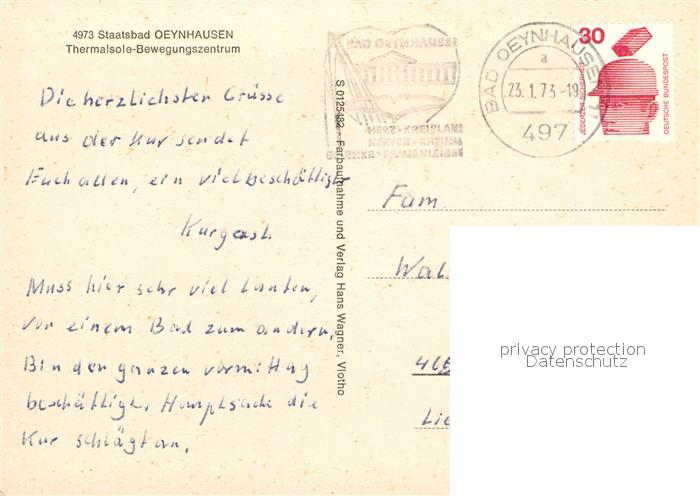 4973 Staatsbad OEYNHAUSEN
Thermalsole-Bewegungszentrum
Die herzlichsten Grüsse
aus der Kur sendet
Euch allen, ein vielbeschäftigter
Kurgast.
Muss hier sehr viel laufen,
von einem Bad zum andern,
Bin den ganzen vormittag
beschäftigt. Hauptsache die
Kur schlägt an.
S 0125482 - Farbaufnahme und Verlag Hans Wagner, Vlotho
BAD OEYNHAUSEN
HERZ · KREISLAUF
NERVEN · RHEUMA
GELENKE · FRAUENLEIDEN
BAD OEYNHAUSEN 1
a
23.1.73-19
497
30
JEDERZEIT SICHERHEIT
DEUTSCHE BUNDESPOST
Fam
Wal
privacy protection
Datenschutz